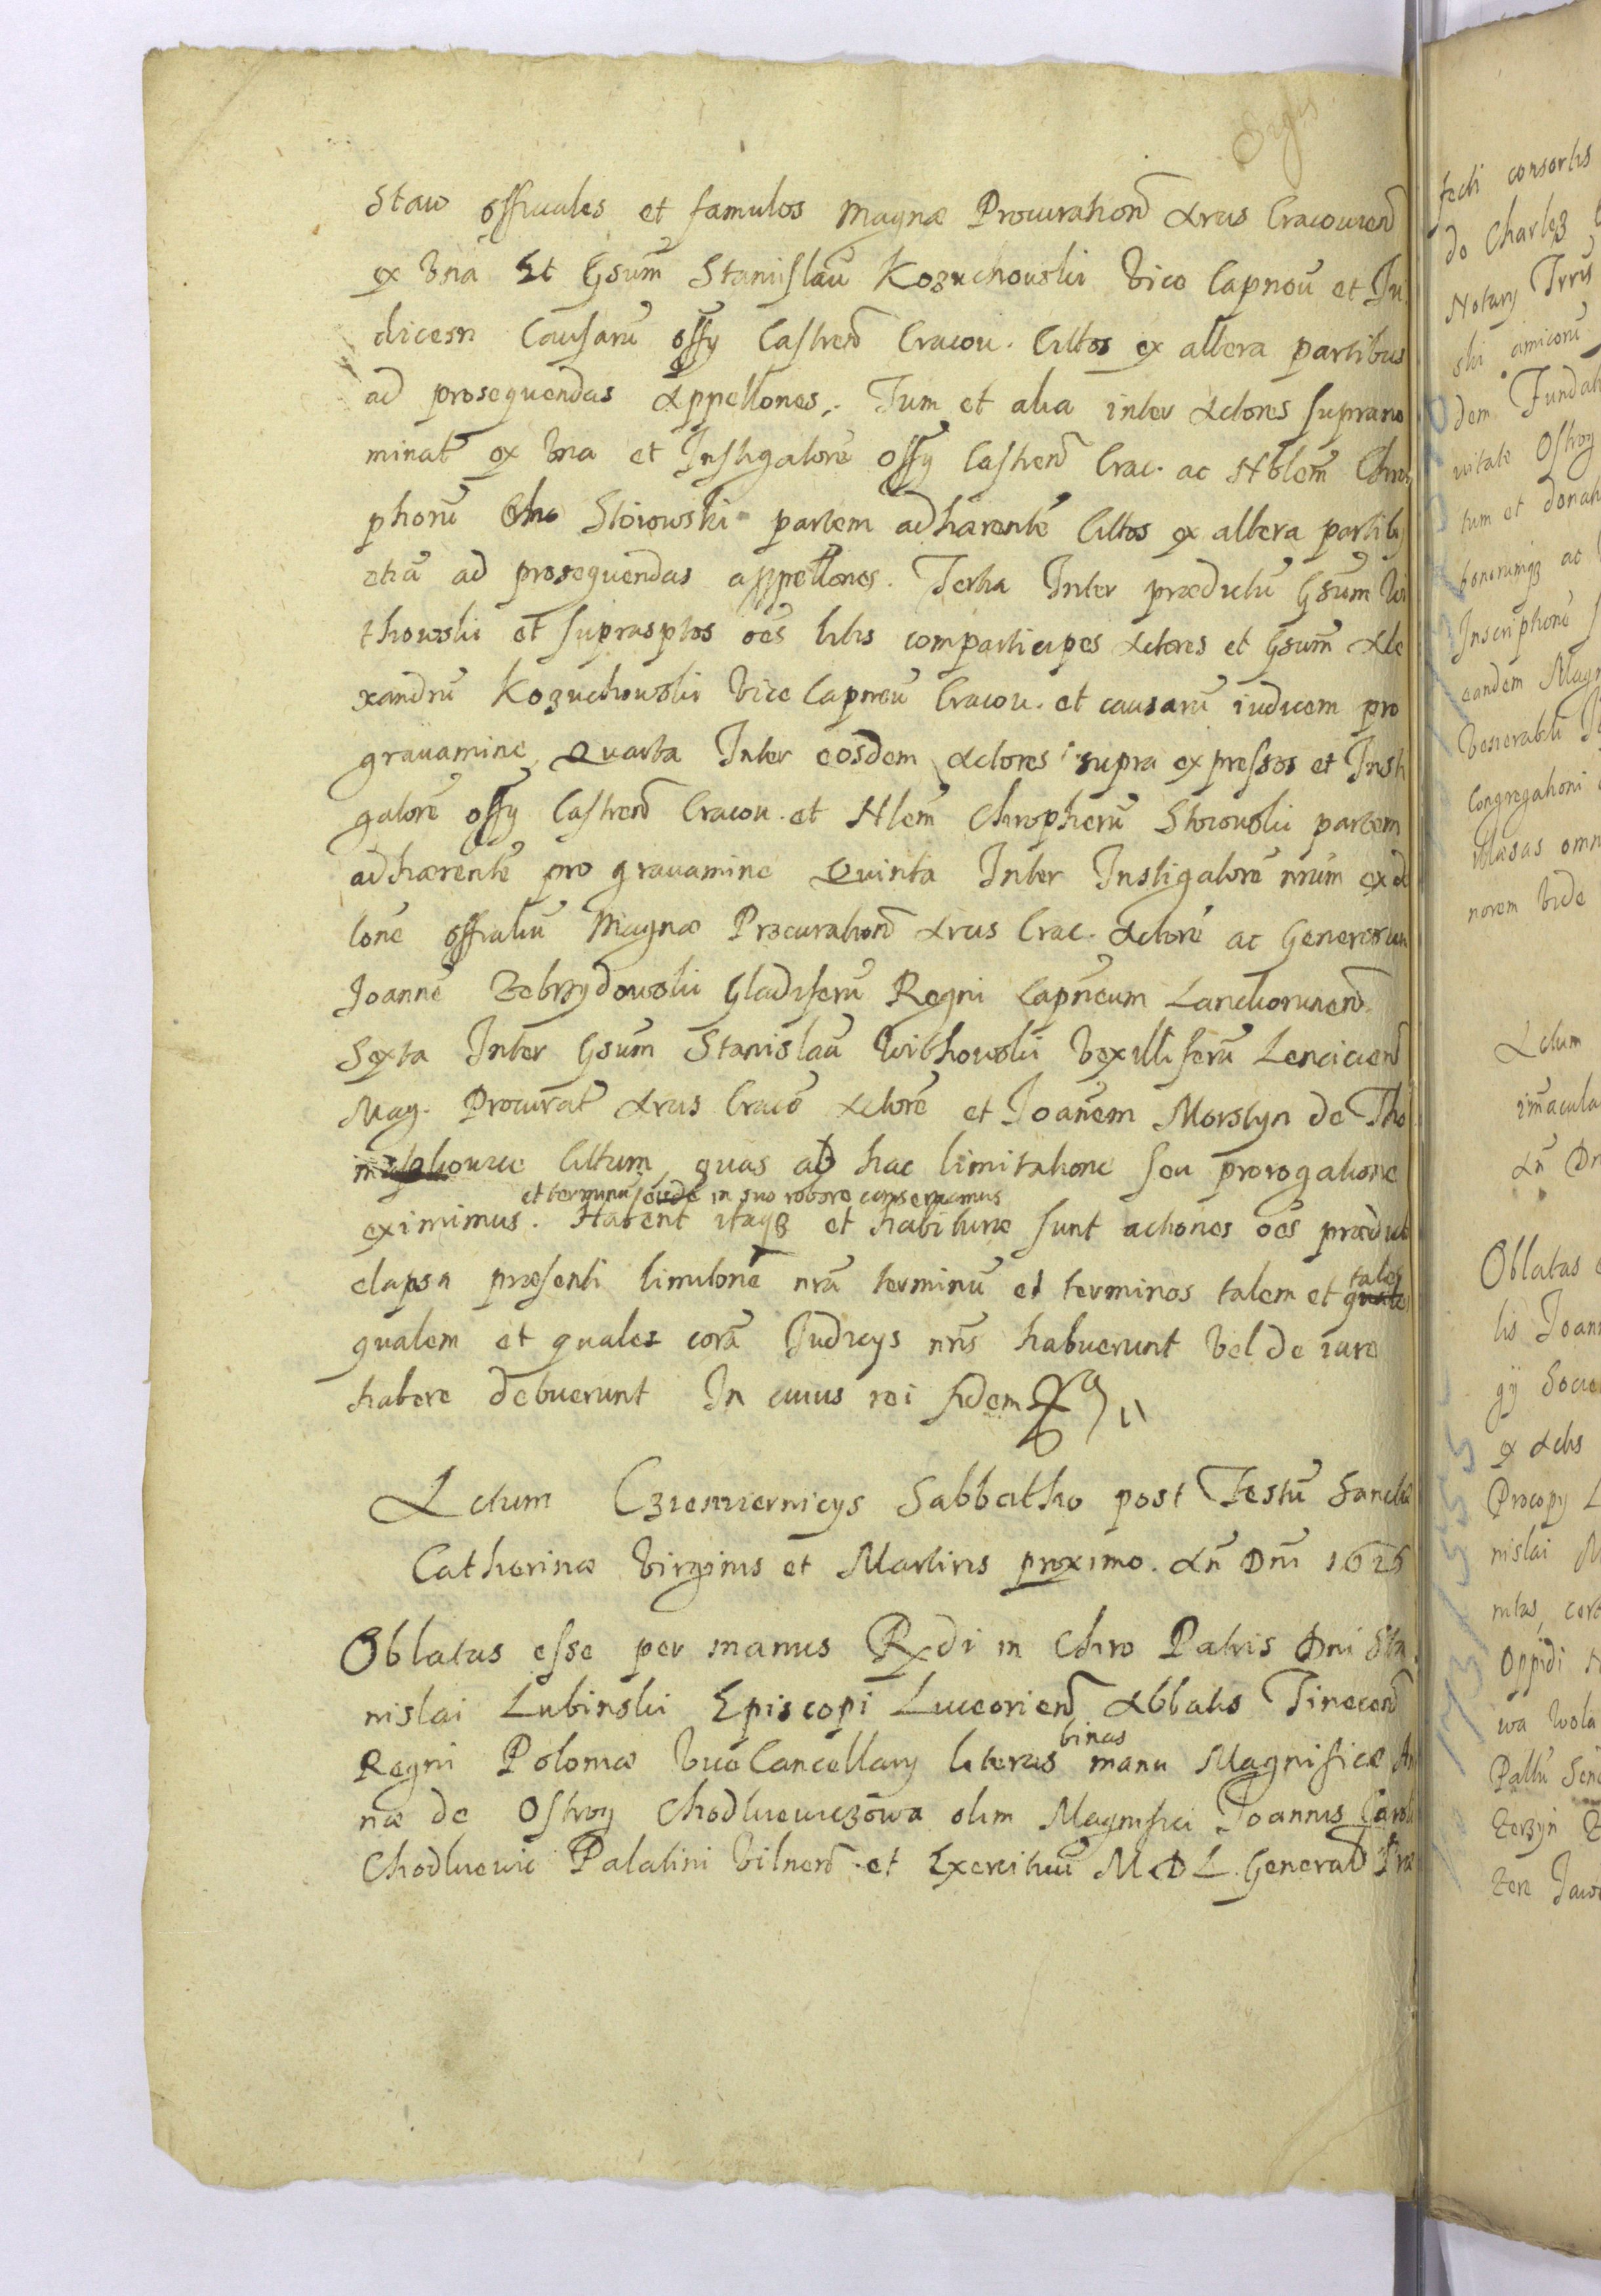 Staw officiales et famulos Magnæ Procurationē Arcis Cracouien
ex vna Et Gsum̄ Stanislaū Kozuchowski Vice Capneū et Iu
dicem Causarū offy Castren Cracou. Citos ex altera partibus
ad prosequendas Appellones. Tum et alia inter Actores supran
minat ex vna et Instigatorē offy Castren Crac. ac Nblem Chris
phorū Stoiowski partem adhærentē Citos ex altera partib
etiā ad prosequendas appellones. Tertia Inter prædictū Gsum Wi
thowski et suprasptos oēs litis comparticipes Actores et Gsum Ale
xandrū Kozuchowski Vice Capneū Cracou. et causarū iudicem pro
grauamine, Quarta Inter eosdem Actores supra expressos et Insti
gatorē offy Castren Cracou. et Nlem Chrophorū Stoiowski partem
adhærentē pro grauamine Quinta Inter Instigatorē nrūm ex de
lonē offialiū Magnæ Procurationē Arcis Crac. Actorē ac Generosum
Joannē Zebrzydowski Gladiferū Regni Capnēum Lanckorunen
Sexta Inter Gsum Stanislaū Withowski Vexilliferū Lencicien
Mag. Procurat Arcis Cracō Actorē et Joanēm Morstyn de
Citum, quas ab hac limitatione seu prorogatione
et terminū in suo robore conseruamus
eximimus. Habent itaqȝ et habituræ sunt actiones oēs prædict
elapsa præsenti limitonē nrā terminū et terminos talem et tales
qualem et quales corā Judicys nrīs habuerunt vel de iure
habere debuerunt In cuius rei fidem
Actum Czieмiernicys Sabbatho post Festū Sanctæ
Catherinæ Virginis et Martiris proximo. An̄ Dnī 1625
Oblatas esse per manus Rxdi in Chro Patris Dni Sta
nislai Lubinski Episcopi Luceorien Abbatis Tinecen
Regni Poloniæ ViceCancellary literas binas manu Magnificæ An
næ de Ostrog Chodkiewiczowa olim Magnifici Joannis Caroli
Chodkiewic Palatini Vilnen et Exercituū M D L General Præ
fecti consortis
de Charlęz
Notary Terris
ski amicorū
dem Fundat
uitate Ostrog
tum et donat
bonorumqȝ ac
Inscriptione
eandem Magn
Venerabili
Congregationi
illæsas omn
norem vide
Actum
imacula
An̄ Dn
Oblatas
lis Joan
gij Socie
ex Actis
Procopy
nislai M
nitas, cert
Oppidi
wa Wola